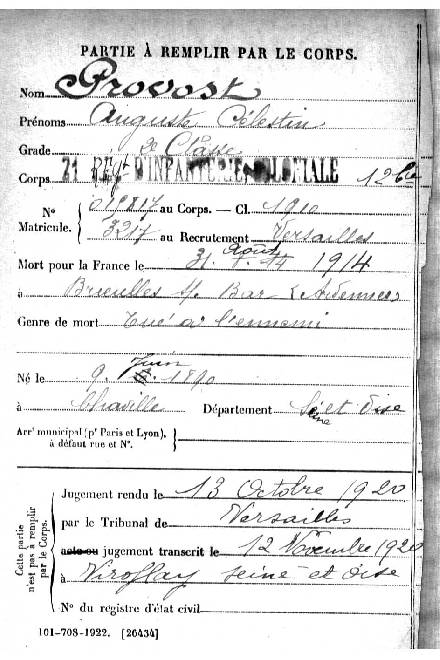 PARTIE À REMPLIR PAR LE CORPS.
Nom Provost
Prénoms Auguste Célestin
Grade 2e Classe
Corps 21 Régt D'INFANTERIE COLONIALE 12 Cie
N° au Corps. — Cl. 1910
Matricule. 3217 au Recrutement Versailles
Mort pour la France le 31. Août 14 1914
à Brieulles s/ Bar (Ardennes)
Genre de mort Tué à l'ennemi
Né le 9. Juin 1890
à Chaville Département Seine et Oise
Arr' municipal (p' Paris et Lyon),
à défaut rue et N°.
Cette partie
n'est pas à remplir
par le Corps.
Jugement rendu le 13 Octobre 1920
par le Tribunal de Versailles
acte ou jugement transcrit le 12 Novembre 1920
à Viroflay Seine et Oise
N° du registre d'état civil
101-708-1922. [26434]